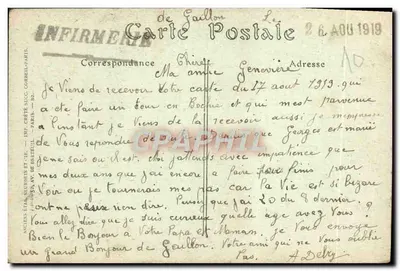 de Gaillon Le
INFIRMERIE
Carte Postale
26 AOU 1919
10
Correspondance
Adresse
Chère
Ma amie Geneviève
Je Viens de recevoir Votre carte du 17 aout 1919 qui
a ete faire un tour en et qui mest parvenue
a l'instant je Viens de la recevoir aussi je
de Vous repondre que Georges est marié
je ne sais ou il est. attends avec impatience que
mes deux ans que jai encore a faire finis pour
Voir ou je tournerais mes pas car la Vie est si bizare
ont ne peux rien dire. Puis que jai 20 du 8 dernier.
Vous allez dire que je suis curieux quelle age avez Vous?
Bien le Bonjour a Votre Papa et Maman. Je Vous envoye
un grand Bonjour de Gaillon. Votre ami qui ne Vous oublie
Pas. A